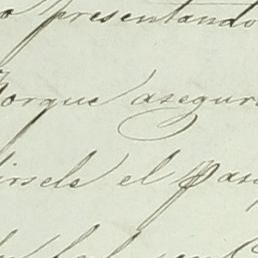 o presentando
Porque asegur
irsele el Pas